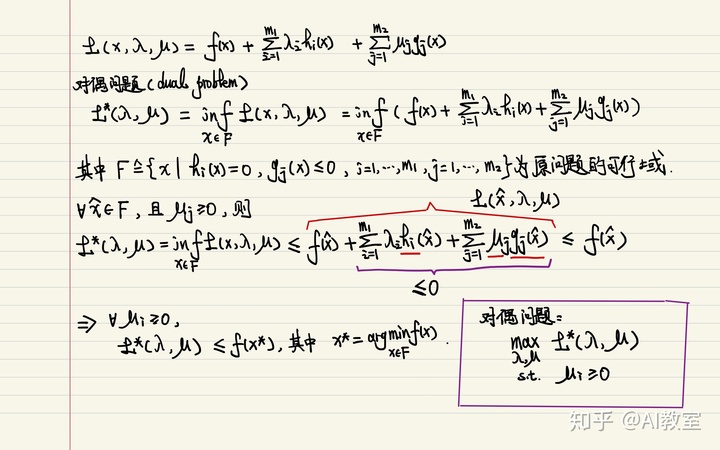 L(x,λ,μ) = f(x) + Σ_{i=1}^{m₁} λᵢhᵢ(x) + Σ_{j=1}^{m₂} μⱼgⱼ(x)
对偶问题(dual problem)
L*(λ,μ) = inf_{x∈F} L(x,λ,μ) = inf_{x∈F} (f(x) + Σ_{i=1}^{m₁} λᵢhᵢ(x) + Σ_{j=1}^{m₂} μⱼgⱼ(x))
其中 F ≙ {x | hᵢ(x)=0, gⱼ(x)≤0, i=1,…,m₁, j=1,…,m₂} 为原问题的可行域.
∀x̂∈F, 且 μⱼ≥0, 则
L(x̂,λ,μ)
L*(λ,μ) = inf_{x∈F} L(x,λ,μ) ≤ f(x̂) + Σ_{i=1}^{m₁} λᵢhᵢ(x̂) + Σ_{j=1}^{m₂} μⱼgⱼ(x̂) ≤ f(x̂)
≤0
⇒ ∀μᵢ≥0,
L*(λ,μ) ≤ f(x*), 其中 x* = argmin_{x∈F} f(x).
对偶问题:
max_{λ,μ} L*(λ,μ)
s.t. μᵢ≥0
知乎 @AI教室